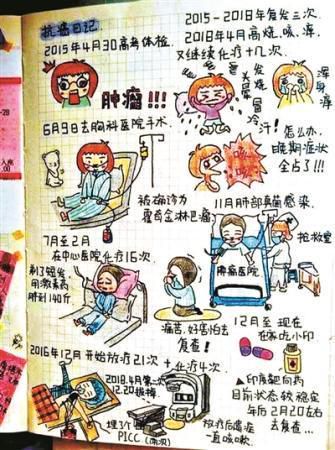 抗癌日记
2015年4月30高考体检.
肿瘤!!!
6月9日去胸科医院手术
被确诊为
霍奇金淋巴瘤
7月至2月
在中心医院化疗16次
剃了短发
用激素药
胖到140斤
痛苦.好害怕去
复查!
2016年12月开始放疗21次+化疗4次
2018.4月第二次
12.20拔掉
埋3个
PICC(两次)
放疗后遗症
一直咳嗽.
2015-2018年复发三次
2018年4月高烧.咳.痒.
又继续化疗十几次
发烧
冒冷汗!
浑身痒
怎么办.
晚期症状
全占了!!!
咳
咳
11月肺部真菌感染.
抢救室
肿瘤医院
12月至现在
在家吃小印
印度靶向药
目前状态较稳定
年后2月20左右
去复查...